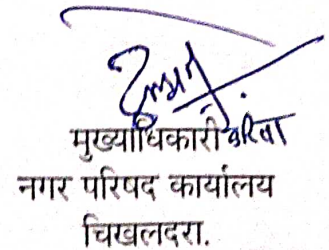 मुख्याधिकारी करिता
नगर परिषद कार्यालय
चिखलदरा.